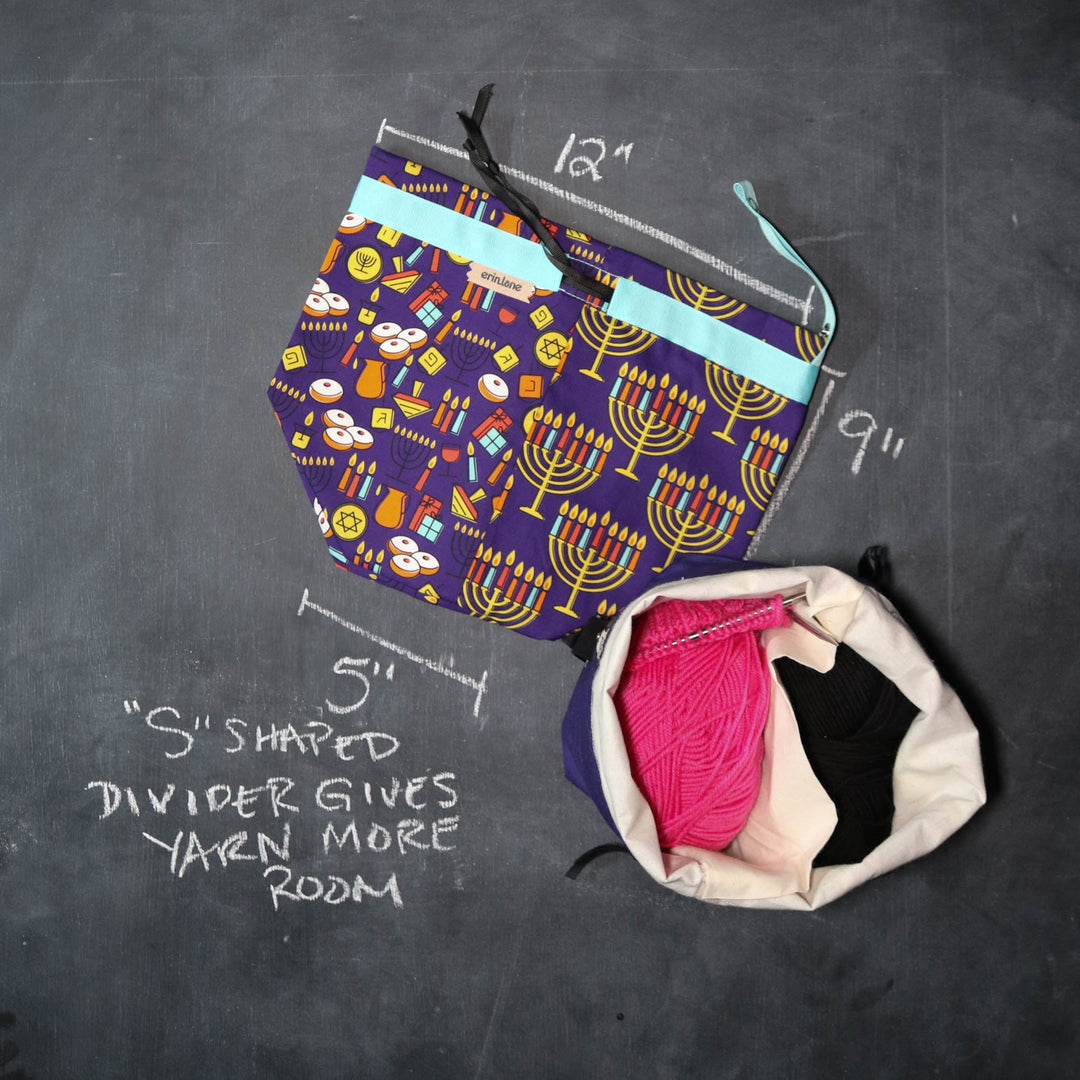 12"
erin.lane
9"
5"
"S" SHAPED
DIVIDER GIVES
YARN MORE
ROOM